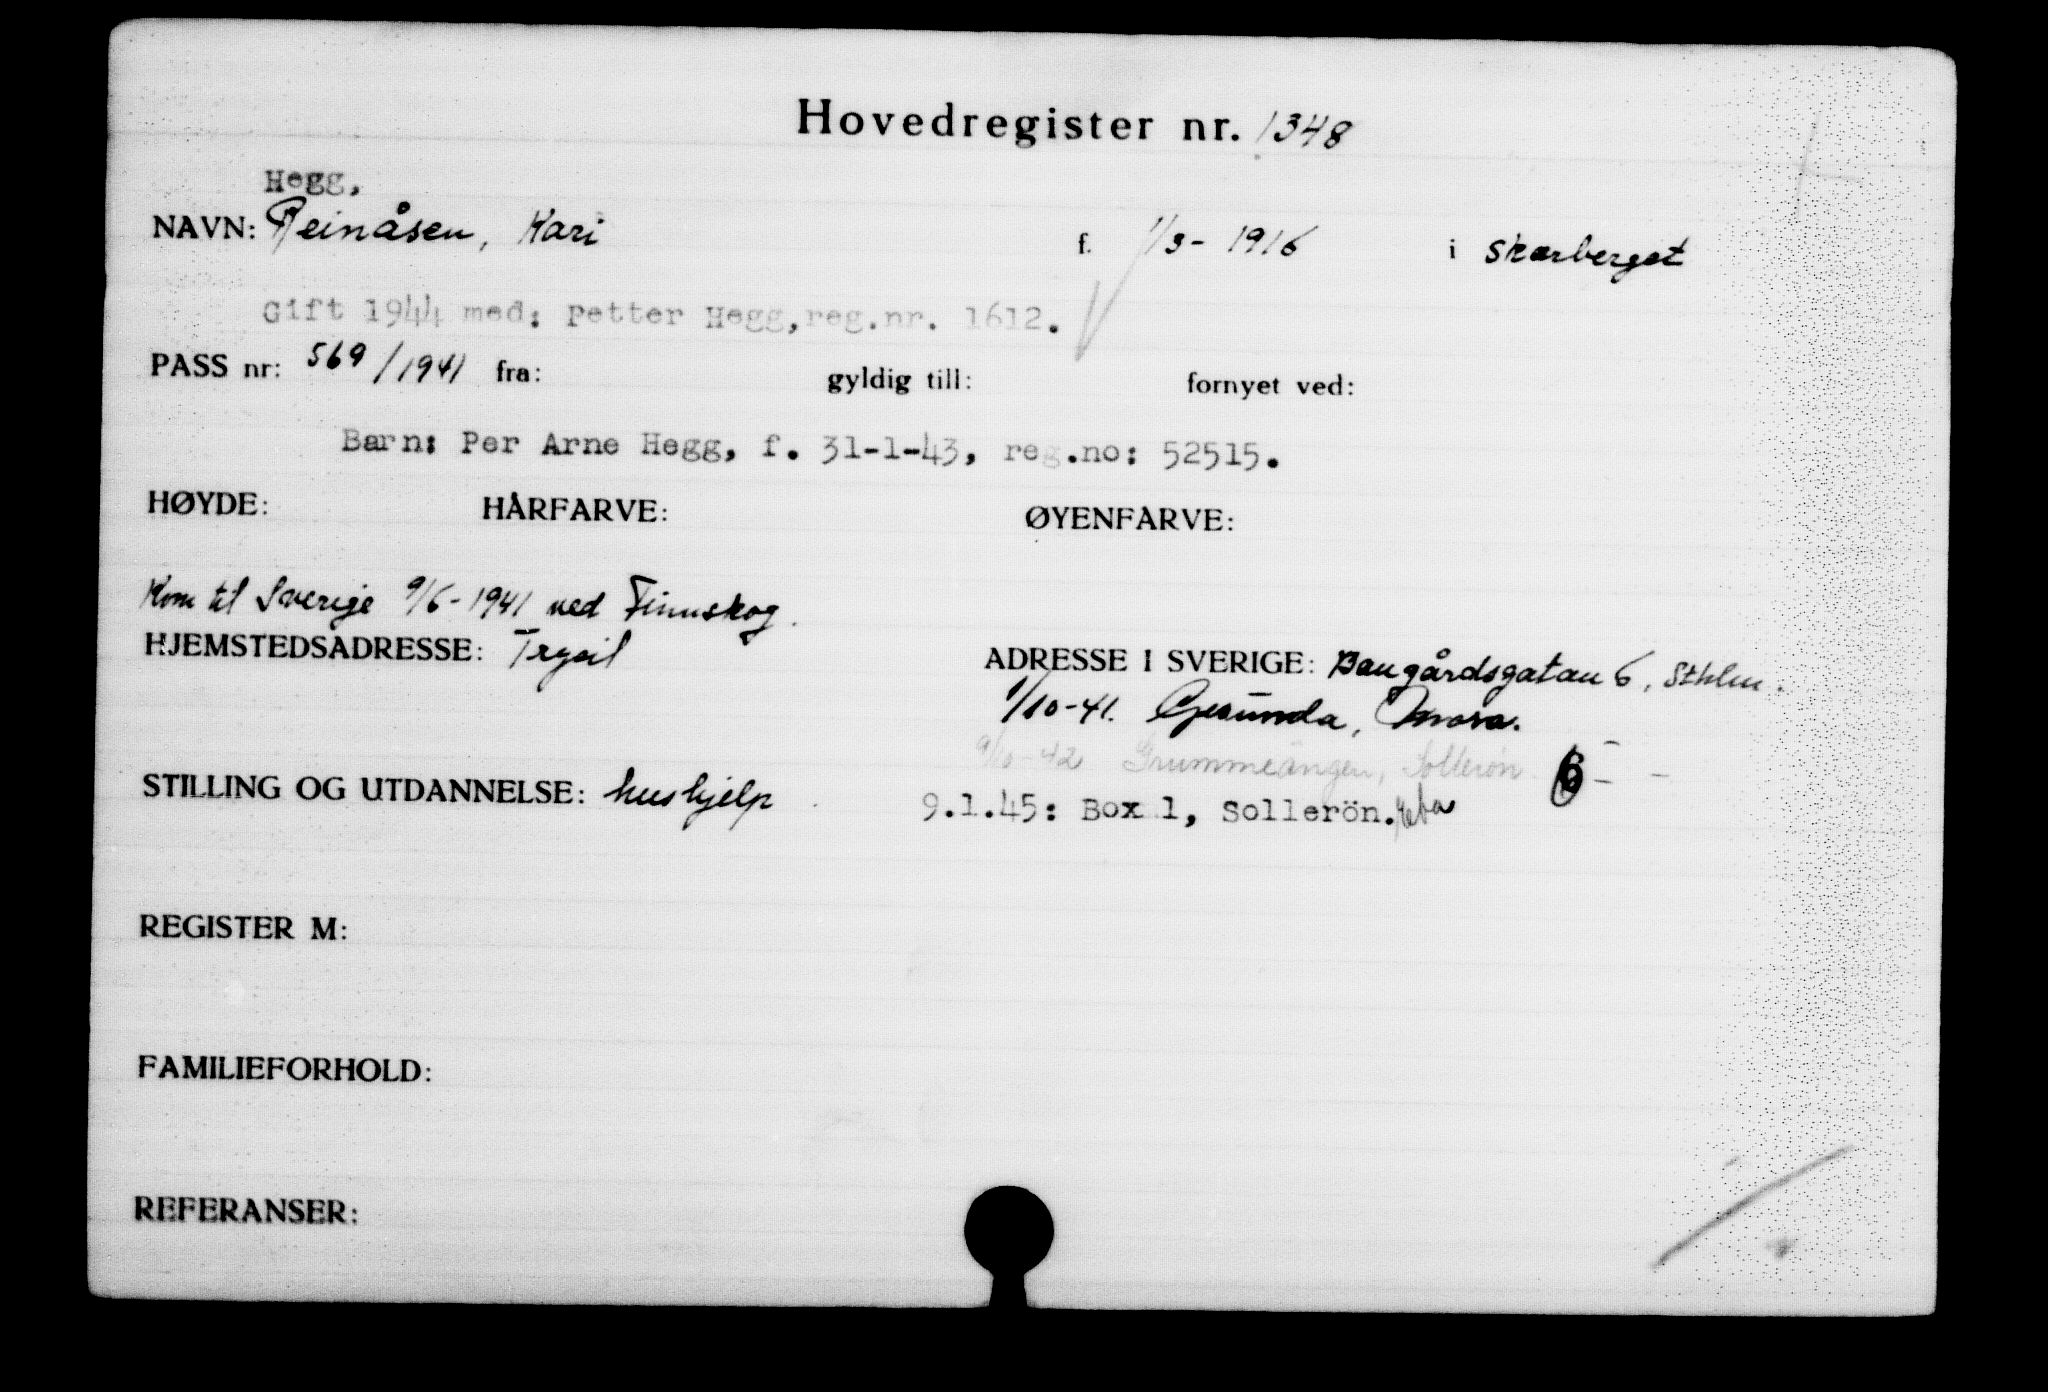 Hovedregister nr. 1348
Hegg,
NAVN: Reinåsen, Kari f. 1/3- 1916 i Skærberget
Gift 1944 med: Petter Hegg, reg.nr. 1612.
PASS nr: 569/1941 fra: gyldig till: fornyet ved:
Barn: Per Arne Hegg, f. 31-1-43, reg.no: 52515.
HØYDE: HÅRFARVE: ØYENFARVE:
Kom til Sverige 9/6-1941 ved Finnskog.
HJEMSTEDSADRESSE: Trysil ADRESSE I SVERIGE: Baugårdsgatan 6, Sthlm.
1/10-41. Gesunda, Mora.
9/10-42 Grummeängen, Sollerön
STILLING OG UTDANNELSE: hushjelp
9.1.45: Box 1, Sollerön.
REGISTER M:
FAMILIEFORHOLD:
REFERANSER: